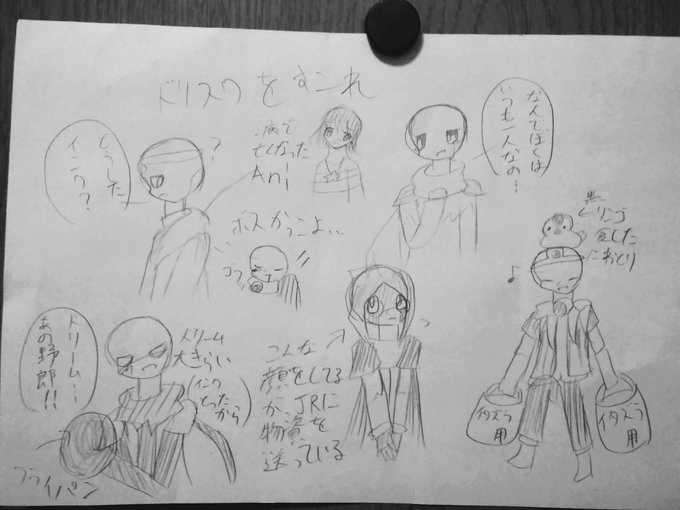 ドリスワをすこれ
どうした
インク?
?
病で
亡くなった
Ani
なんでぼくは
いつも一人なの…
ボスかっこよ…
ゴフッ
!!
黒
リンゴ
食した
にわとり
♪
ドリーム…
あの野郎!!
ドリーム
大きらい
(インク
とったから)
フライパン
こんな
顔をしてる
が、JRに
物資を
送っている
イタズラ
用
イタズラ
用